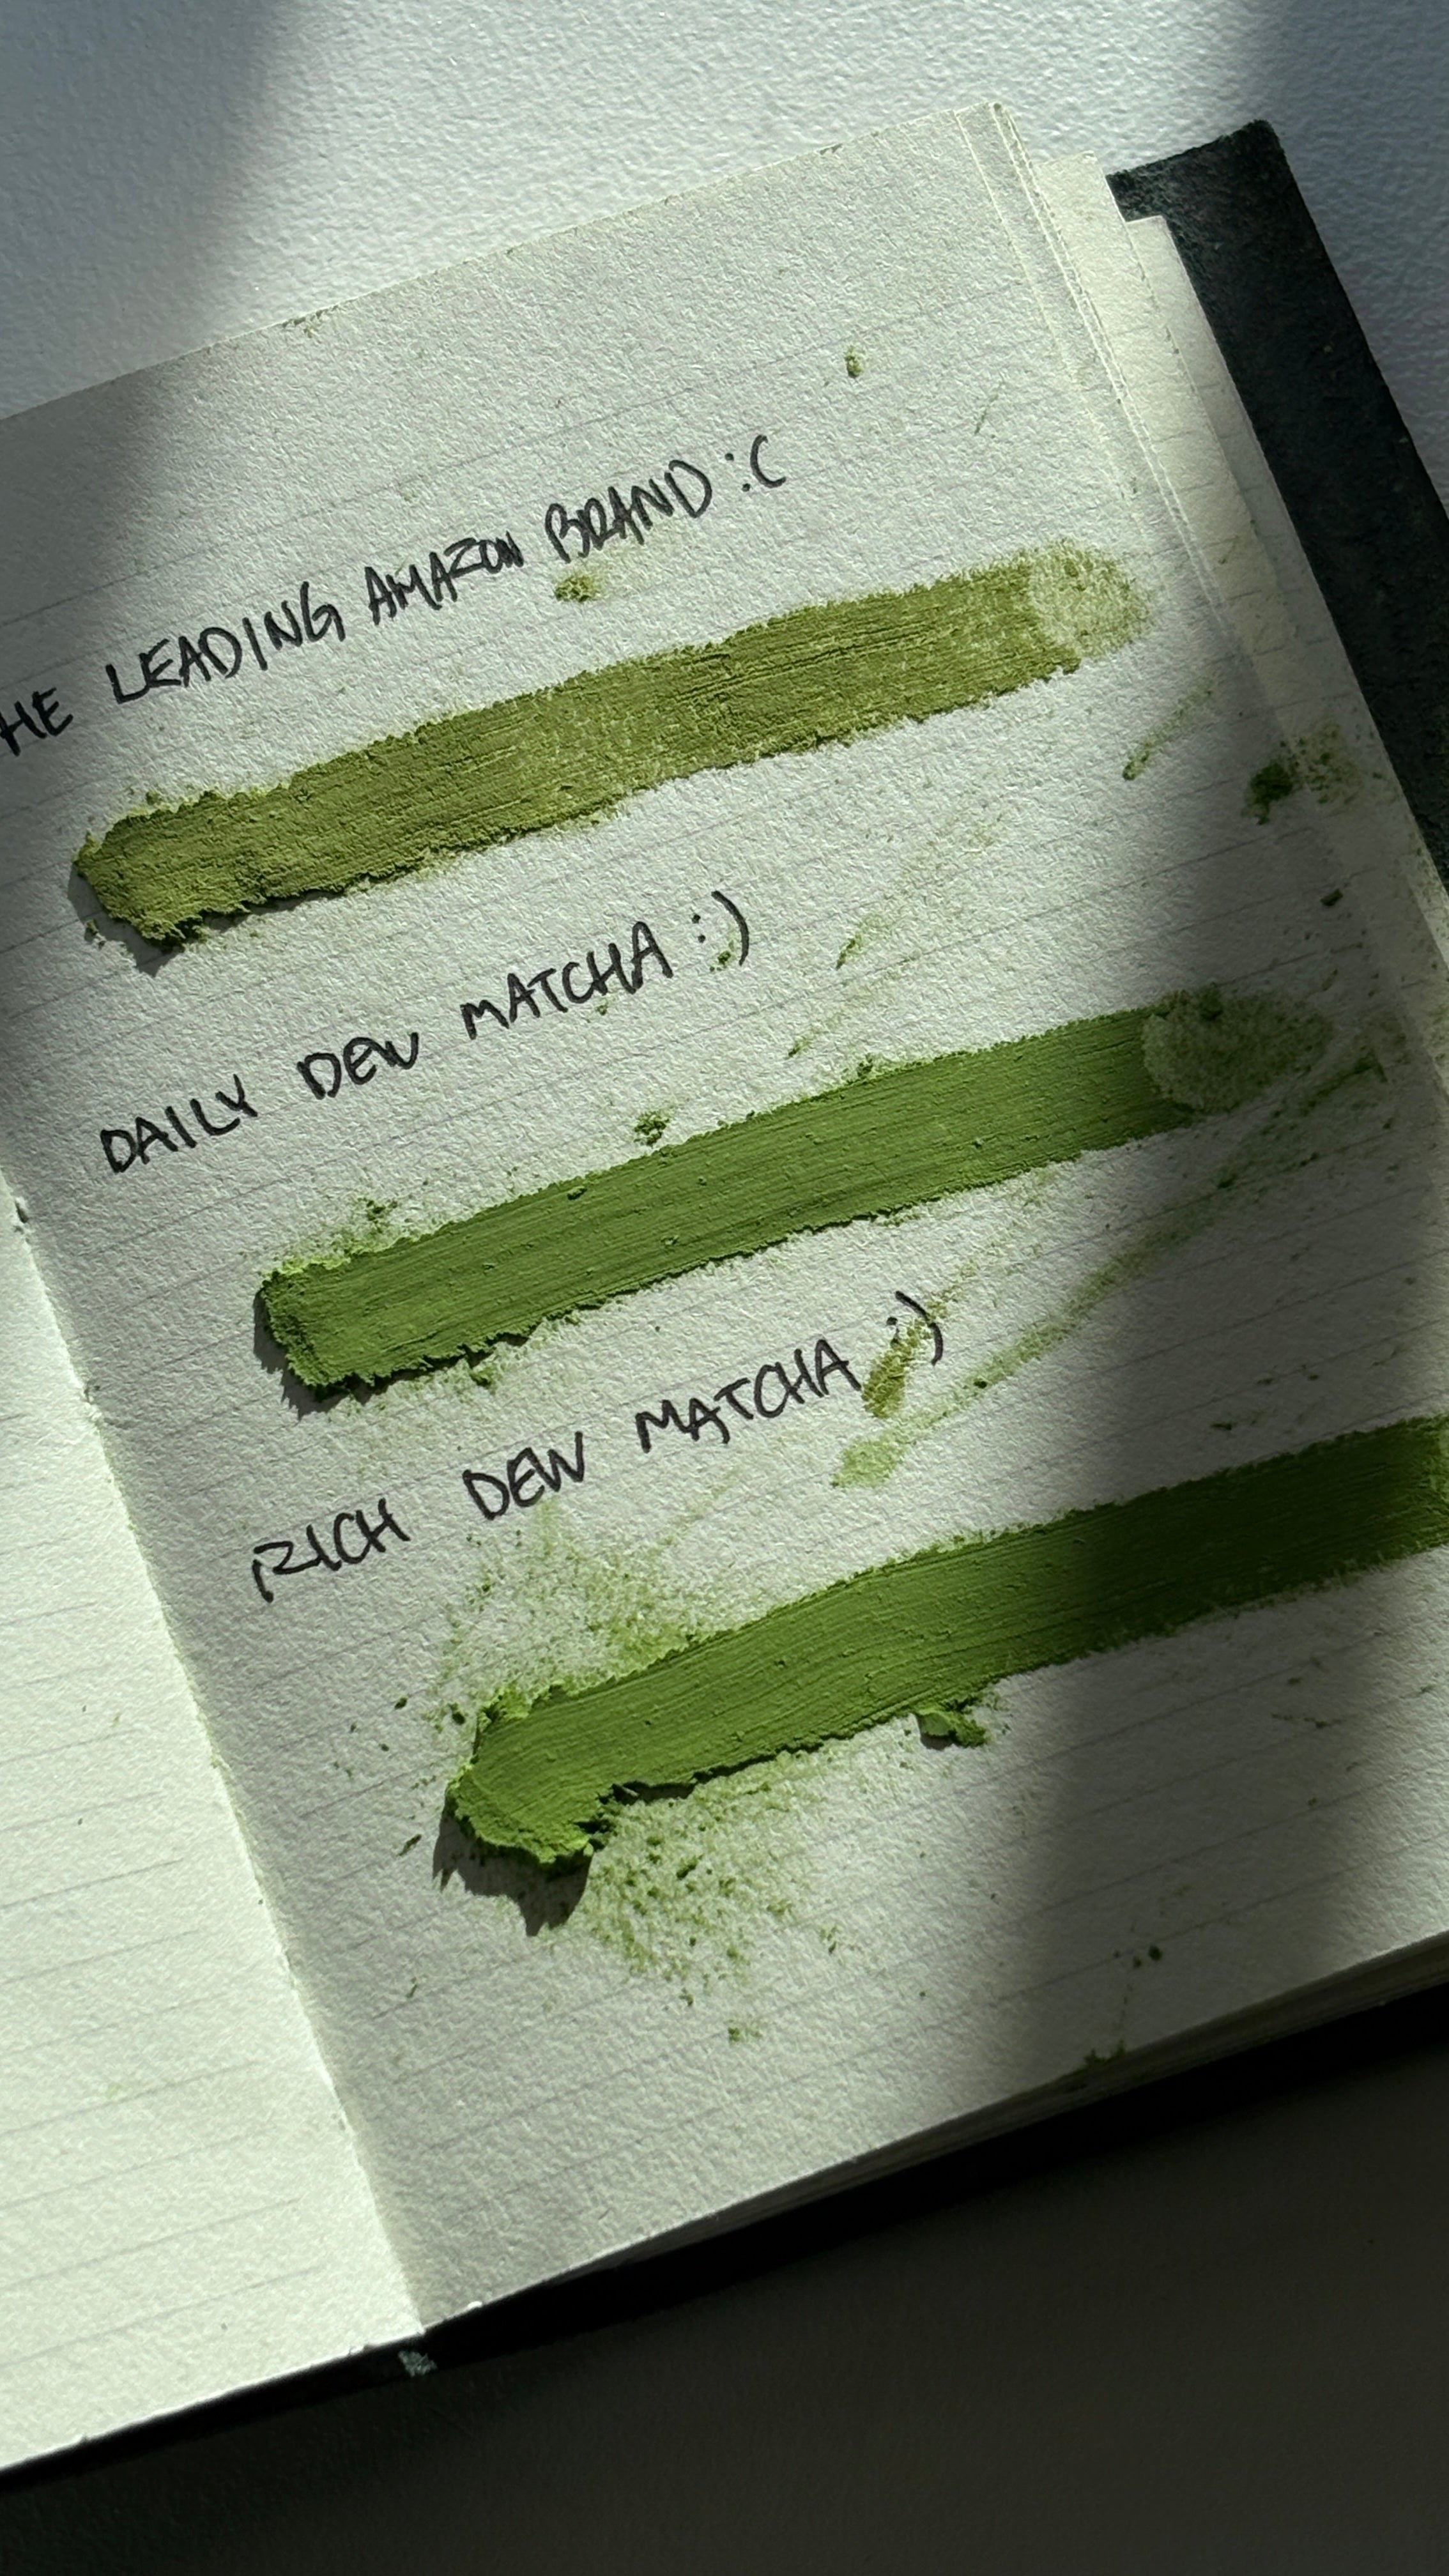 HE LEADING AMAZON BRAND :(
DAILY DEW MATCHA :)
RICH DEW MATCHA :)